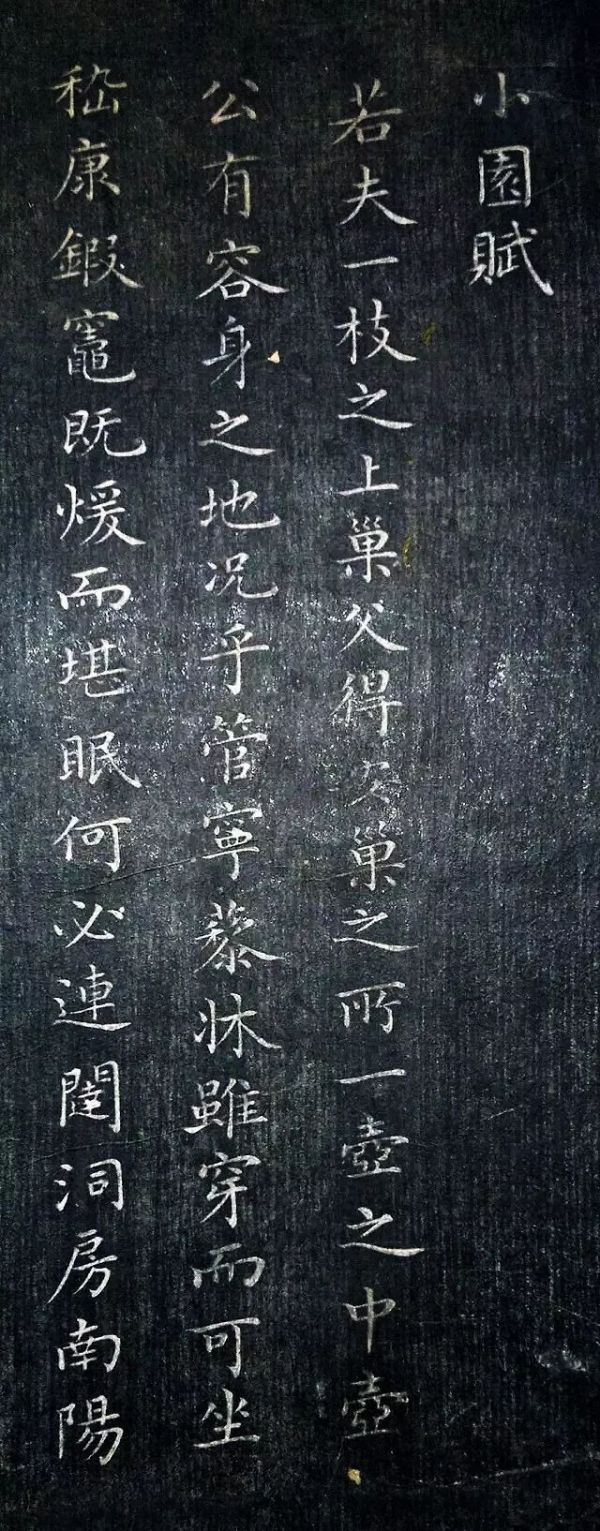 小園賦
若夫一枝之上巢父得安巢之所一壺之中壺
公有容身之地况乎管寧藜牀雖穿而可坐
嵇康鍜竈既煖而堪眠何必連闥洞房南陽